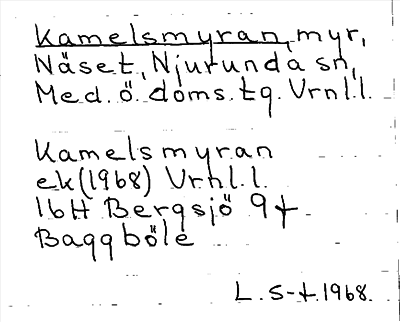 Kamelsmyran, myr,
Näset, Njurunda sn,
Med. ö. doms. tg. Vrnl.l.
Kamelsmyran
ek (1968) Vrnl.l.
16H Bergsjö 9f
Baggböle
L. S-t. 1968.